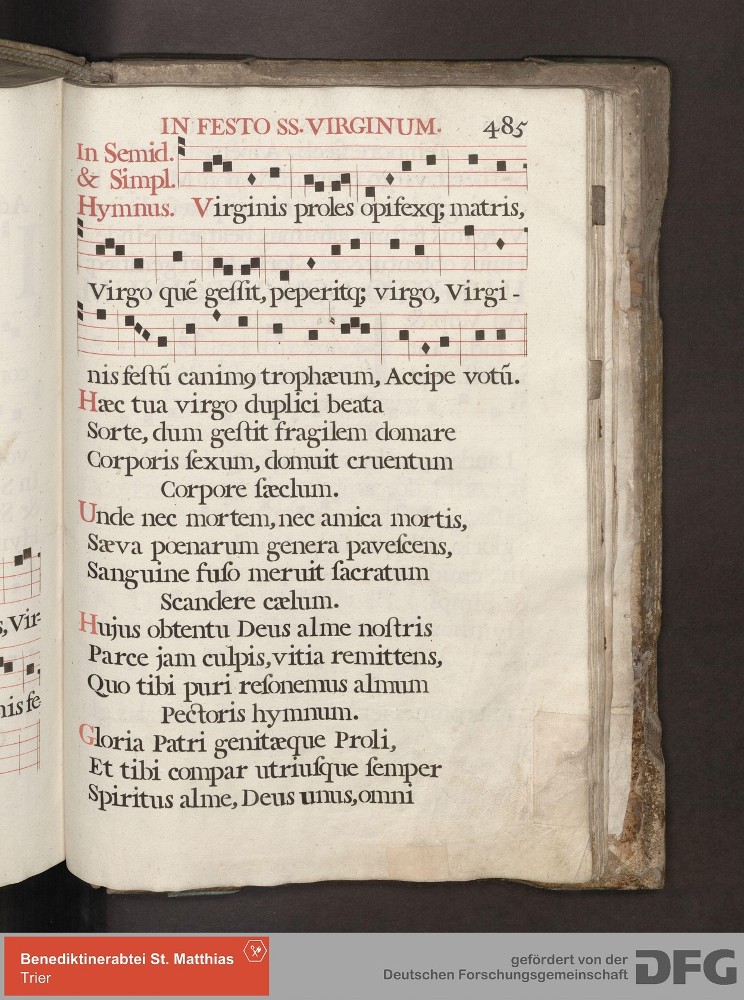 IN FESTO SS. VIRGINUM. 485
In Semid.
& Simpl.
Hymnus. Virginis proles opifexq; matris,
Virgo quẽ geſſit, peperitq; virgo, Virgi -
nis feſtũ canimꝯ trophæum, Accipe votũ.
Hæc tua virgo duplici beata
Sorte, dum geſtit fragilem domare
Corporis ſexum, domuit cruentum
Corpore ſæclum.
Unde nec mortem, nec amica mortis,
Sæva poenarum genera paveſcens,
Sanguine fuſo meruit ſacratum
Scandere cælum.
Hujus obtentu Deus alme noſtris
Parce jam culpis, vitia remittens,
Quo tibi puri reſonemus almum
Pectoris hymnum.
Gloria Patri genitæque Proli,
Et tibi compar utriuſque ſemper
Spiritus alme, Deus unus, omni
s, Vir-
nis fe
Benediktinerabtei St. Matthias
Trier
gefördert von der
Deutschen Forschungsgemeinschaft
DFG